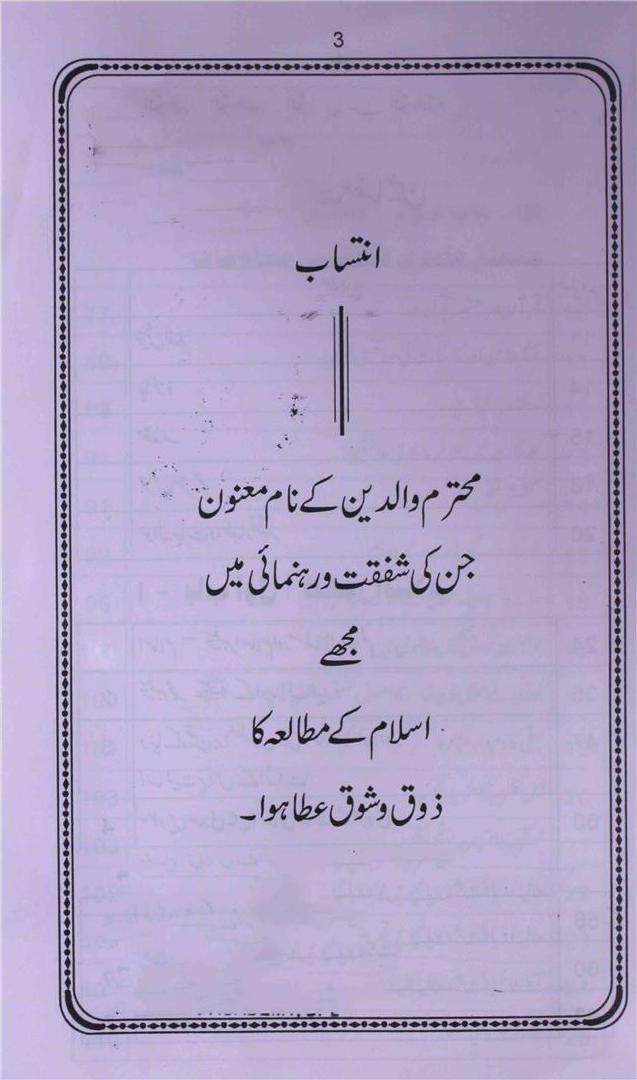 3
انتساب
محترم والدین کے نام معنون
جن کی شفقت و رہنمائی میں
مجھے
اسلام کے مطالعہ کا
ذوق و شوق عطا ہوا۔